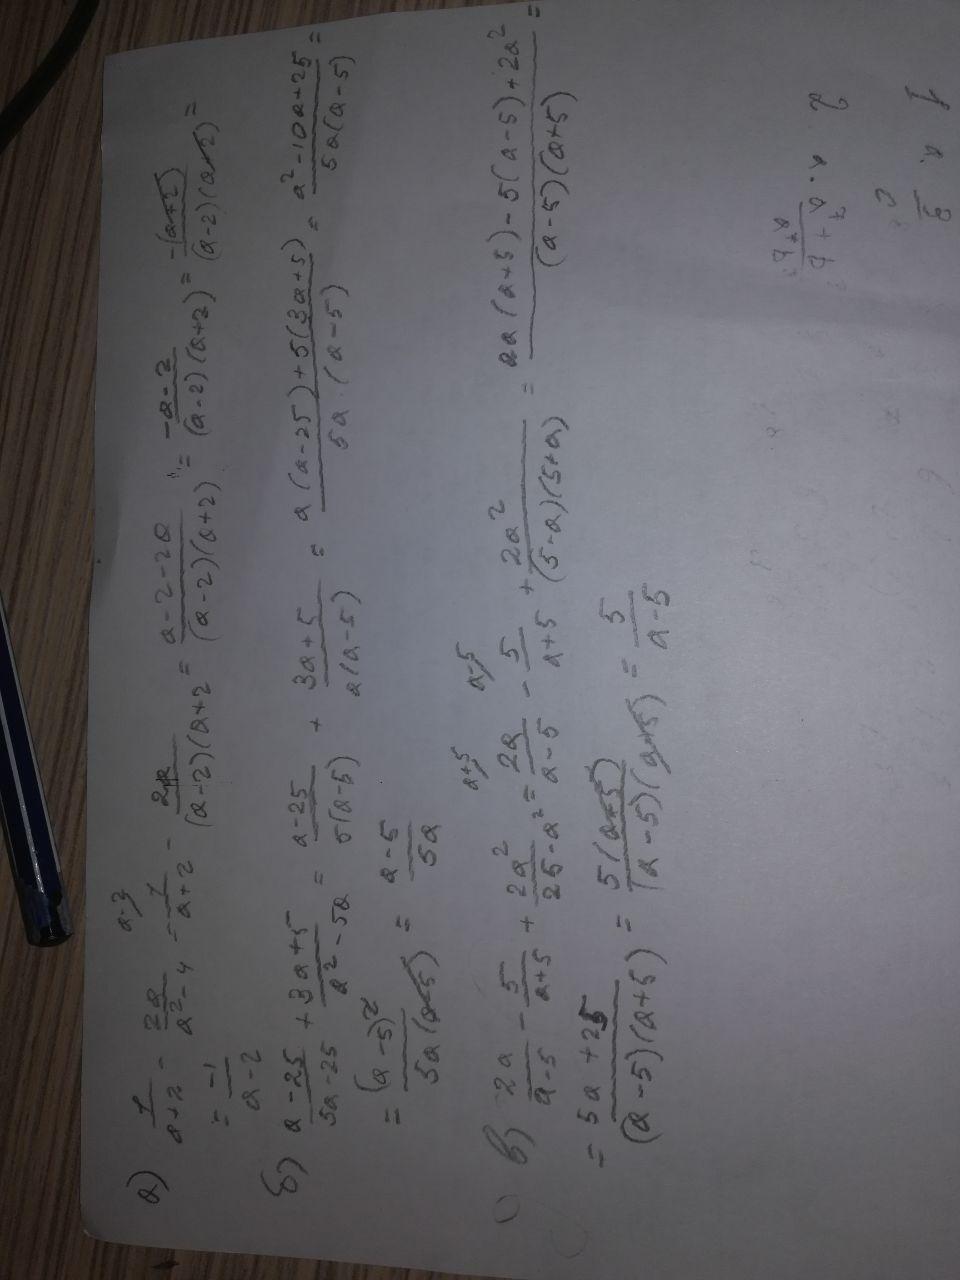 а) 1/(a+2) - 2a/(a²-4) = 1/(a+2) - 2a/((a-2)(a+2)) = (a-2-2a)/((a-2)(a+2)) = (-a-2)/((a-2)(a+2)) = -(a+2)/((a-2)(a+2)) =
= -1/(a-2)
б) (a-25)/(5a-25) + (3a+5)/(a²-5a) = (a-25)/(5(a-5)) + (3a+5)/(a(a-5)) = (a(a-25)+5(3a+5))/(5a·(a-5)) = (a²-10a+25)/(5a(a-5)) =
= (a-5)²/(5a(a-5)) = (a-5)/(5a)
a+5 a-5
в) 2a/(a-5) - 5/(a+5) + 2a²/(25-a²) = 2a/(a-5) - 5/(a+5) + 2a²/((5-a)(5+a)) = (2a(a+5)-5(a-5)+2a²)/((a-5)(a+5)) =
= (5a+25)/((a-5)(a+5)) = 5(a+5)/((a-5)(a+5)) = 5/(a-5)